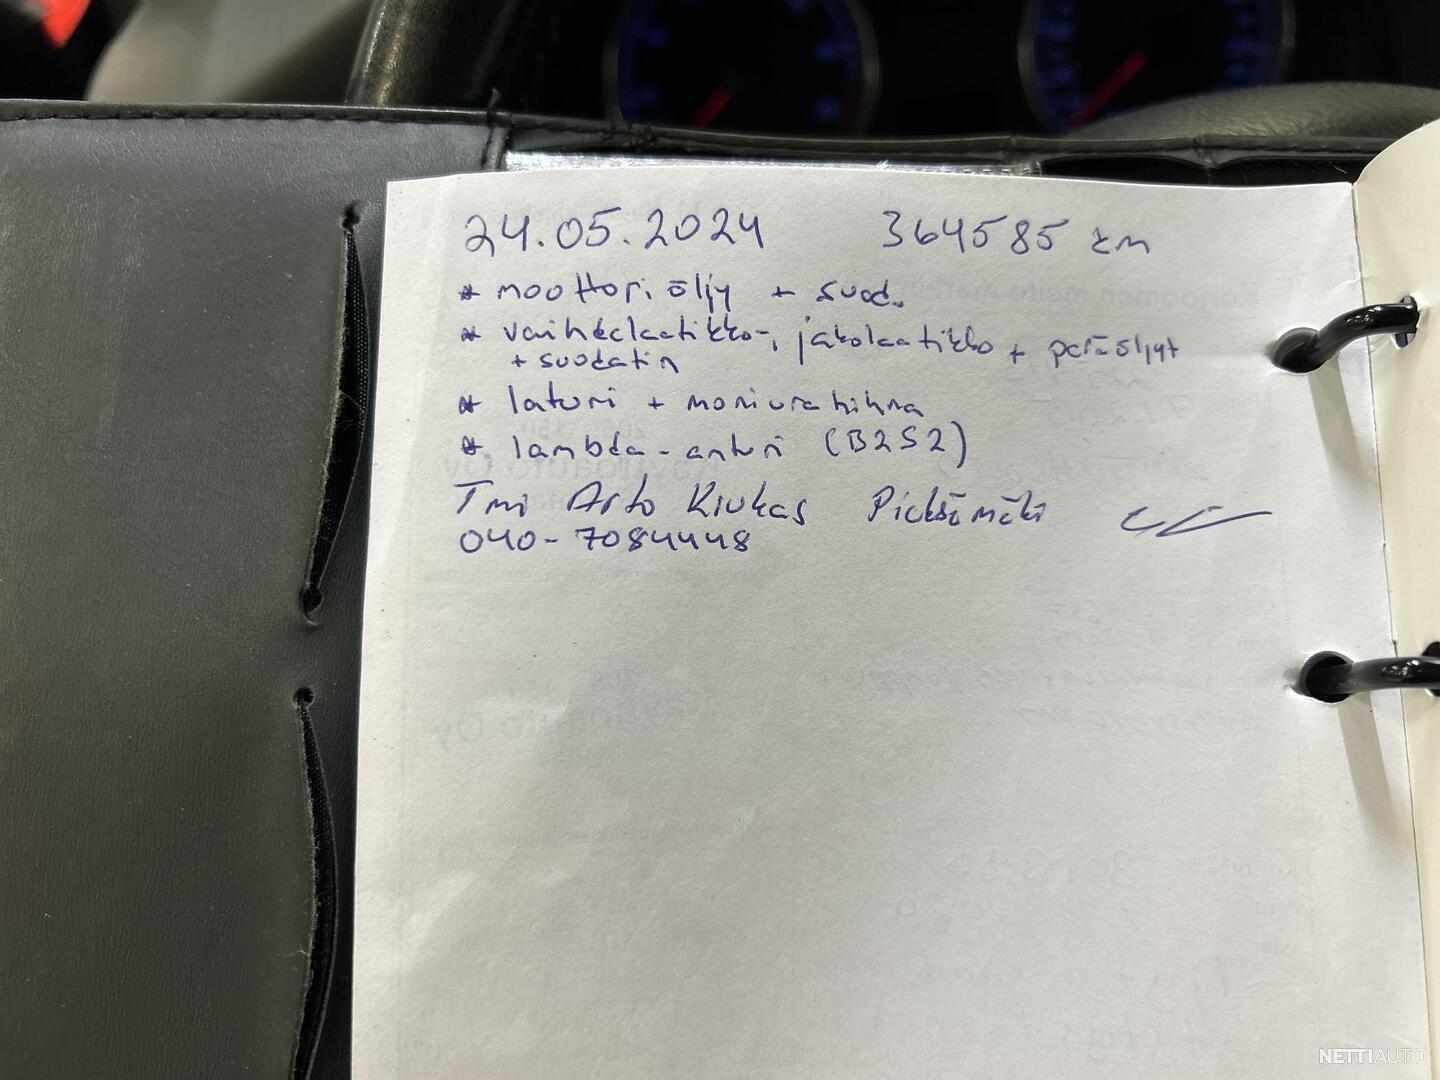 24.05.2024 364585 km
* moottoriöljy + suod.
* vaihdelaatikko-, jakolaatikko + peräöljyt
+ suodatin
* laturi + moniurahihna
* lambda-anturi (B2S2)
Tmi Arto Kiukas Pieksämäki
040-7084448
NETTIAUTO